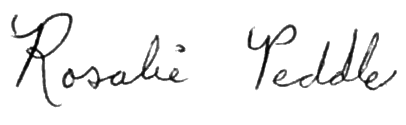 Rosalie Peddle